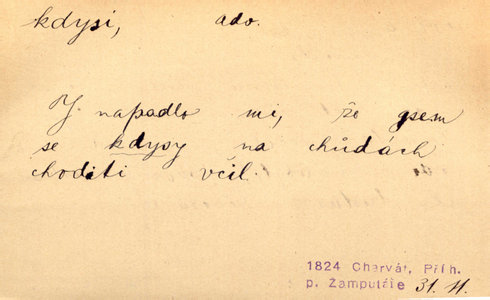 kdysi, adv.
I napadlo mi, že jsem
se kdysy na chůdách
choditi včil.
1824 Charvát, Příh.
p. Žamputáře 31. 11.